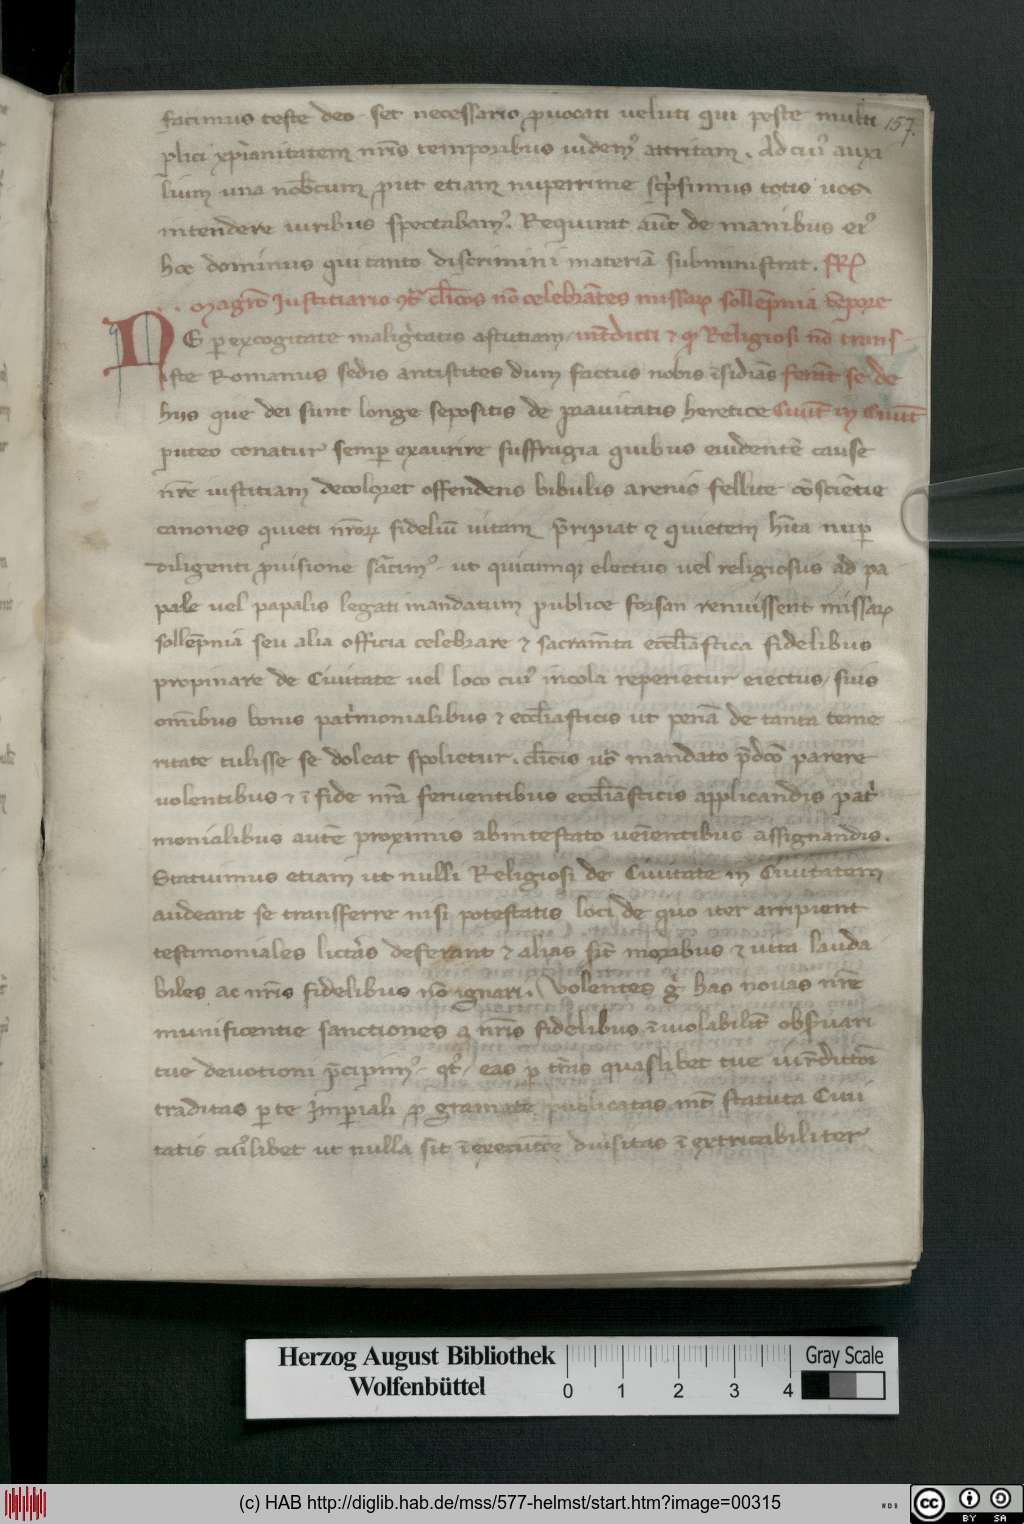 facimus teste deo set necessario ꝓuocati veluti qui peste multi
157.
plici xp̄ianitatem nr̄is temporibus videmꝰ attritam. Ad cuiꝰ auxi
lium vna nobcum ꝓut etiam nuperrime scͥpsimus totis vos
intendere viribus spectabamꝰ. Requirat aūt de manibus eiꝰ
hec dominus qui tanto discrimini materiā subministrat. FR
Magrō Justitiario ꝯtͣ cl̄icos nō celebrātes missaꝝ sollēpnia tēpore
NE ꝑ excogitate maligͥtatis astutiam int̄dicti ⁊ ꝙ Religiosi nō trans
iste Romanus sedis antistites dum factus nobis īsidiās ferāt se de
hijs que dei sunt longe sepositis de prauitatis heretice Ciuit̄ in Ciuit̄
puteo conatur semꝑ exaurire suffragia quibus euidentē cause
nr̄e iustitiam decoloret offendens bibulis arenis fellite cōsciētie
canones quieti nr̄oꝝ fideliū vitam p̄ripiat ⁊ quietem hīta nuꝑ
diligenti ꝓuisione sācimꝰ vt quicumqꝫ electus vel religiosus ad pa
pale vel papalis legati mandatum publice forsan renuissent missaꝝ
sollēpniā seu alia officia celebrare ⁊ sacramēta eccl̄iastica fidelibus
propinare de Ciuitate vel loco cuiꝰ incola reperietur eiectus suis
om̄ibus bonis patͥmonialibus ⁊ eccl̄iasticis vt penā de tanta teme
ritate tulisse se doleat spolietur. cl̄icis vͦ mandato p̄dc̄o parere
volentibus ⁊ ī fide nr̄a feruentibus eccl̄iasticis applicandis patͥ
monialibus autē proximis abintestato veīentibus assignandis.
Statuimus etiam vt nulli Religiosi de Ciuitate in Ciuitatem
audeant se transferre nisi potestatis loci de quo iter arripient
testimoniales licterās deferant ⁊ alias sīt moribus ⁊ vita lauda
biles ac nr̄is fidelibus nō ignari. Volentes gͦ has nouas nr̄e
munificentie sanctiones a nr̄is fidelibus īuiolabilit̄ obs̄uari
tue deuotioni p̄cipimꝰ qtꝰ eas ꝑ tr̄as quaslibet tue iur̄dictōi
traditas ꝑ te Imꝑiali ꝓgramate publicatas int̄ statuta Ciui
tatis cuiꝰlibet vt nulla sit ī execut̄oe diuisitas ī extricabiliter
Herzog August Bibliothek
Wolfenbüttel
0 1 2 3 4
Gray Scale
(c) HAB http://diglib.hab.de/mss/577-helmst/start.htm?image=00315
WDB
cc BY SA